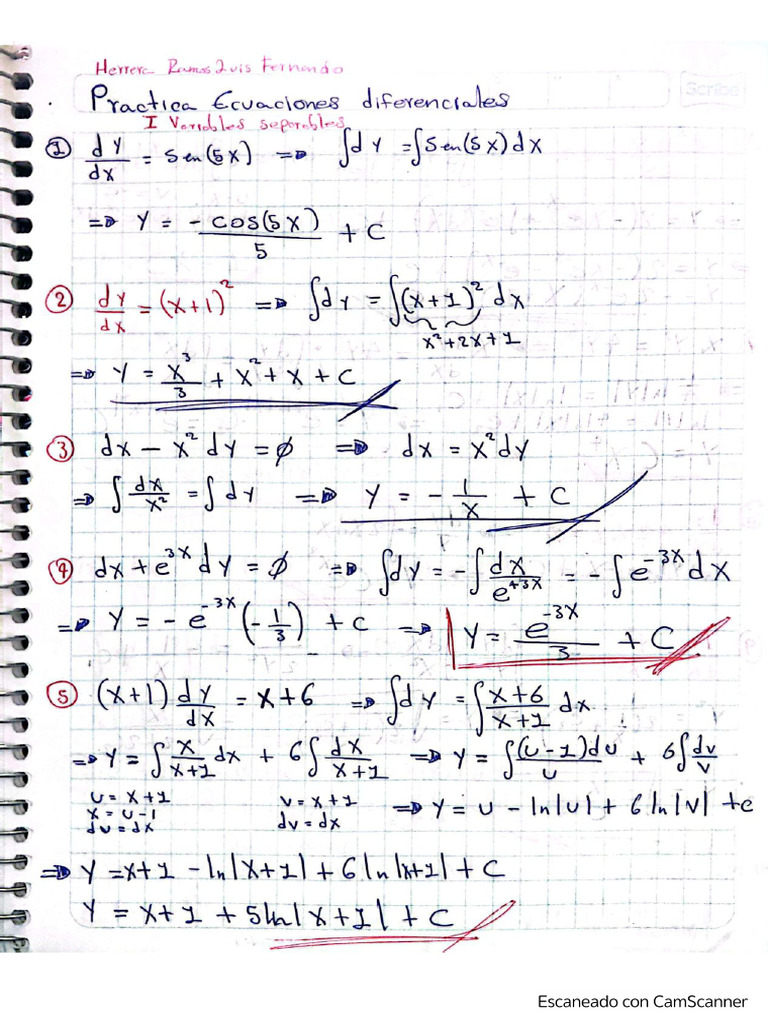 Herrera Ramos Luis Fernando
Scribe
Practica Ecuaciones diferenciales
I Variables separables
① dy/dx = sen(5x) => ∫dy = ∫sen(5x)dx
=> y = -cos(5x)/5 + C
② dy/dx = (x+1)² => ∫dy = ∫(x+1)² dx
x²+2x+1
=> y = x³/3 + x² + x + C
③ dx - x² dy = ∅ => dx = x²dy
=> ∫dx/x² = ∫dy => y = -1/x + C
④ dx + e^{3x} dy = ∅ => ∫dy = -∫dx/e^{+3x} = -∫e^{-3x}dx
=> y = -e^{-3x}(-1/3) + C => y = e^{-3x}/3 + C
⑤ (x+1)dy/dx = x+6 => ∫dy = ∫(x+6)/(x+1) dx
=> y = ∫x/(x+1) dx + 6∫dx/(x+1) => y = ∫(u-1)du/u + 6∫dv/v
u = x+1 v = x+1
x = u-1 dv = dx
du = dx
=> y = u - ln|u| + 6ln|v| + c
=> y = x+1 - ln|x+1| + 6ln|x+1| + C
y = x+1 + 5ln|x+1| + C
Escaneado con CamScanner